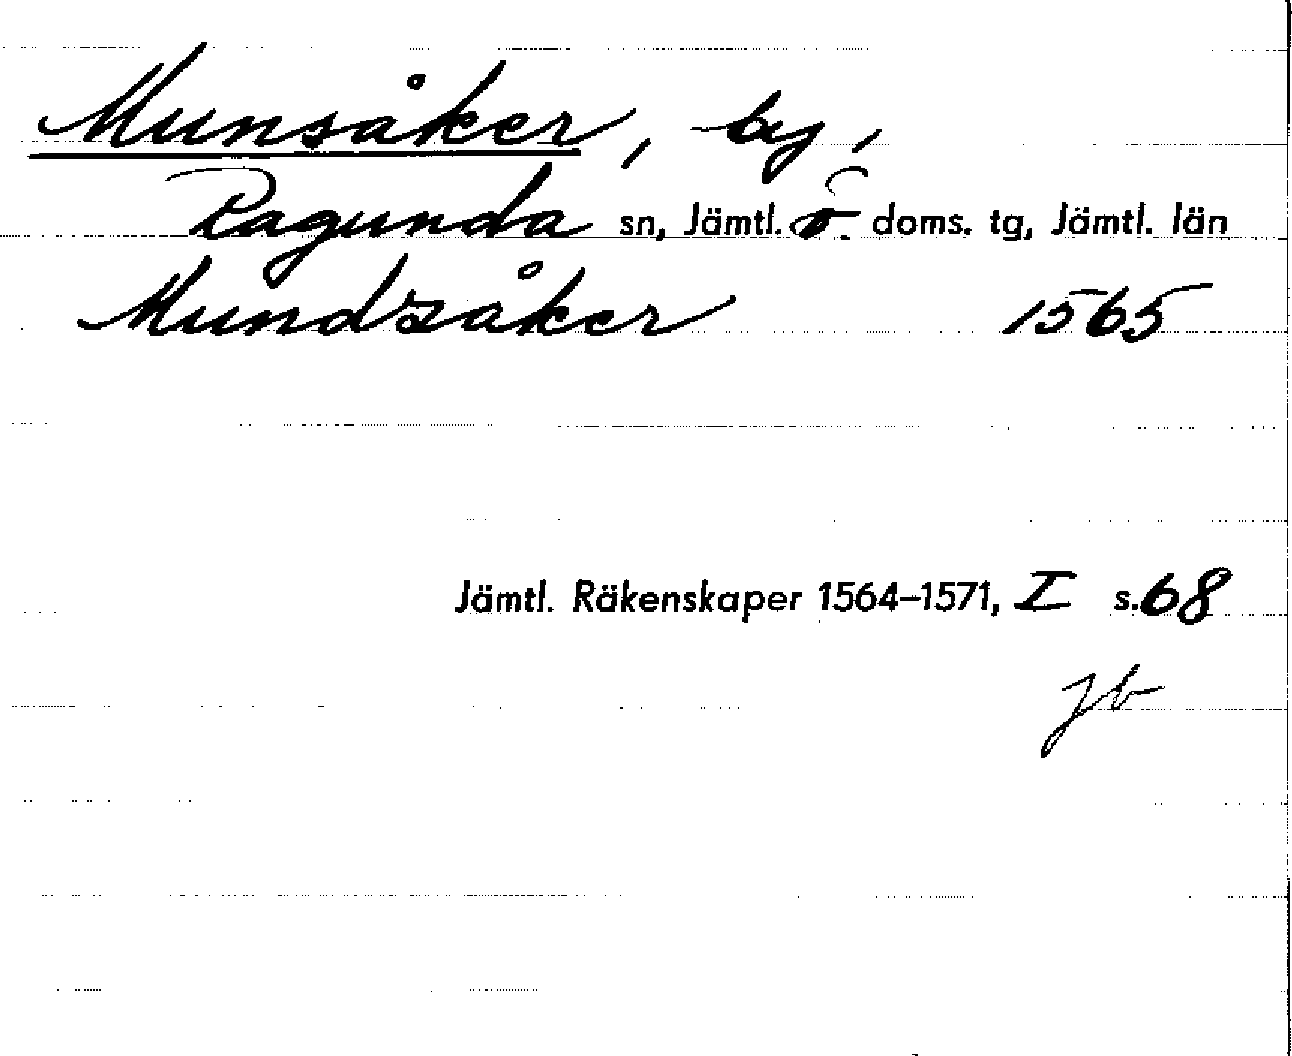 Munsåker, by,
Ragunda sn, Jämtl. ö. doms. tg, Jämtl. län
Mundzåker 1565
Jämtl. Räkenskaper 1564–1571, I s. 68
jb